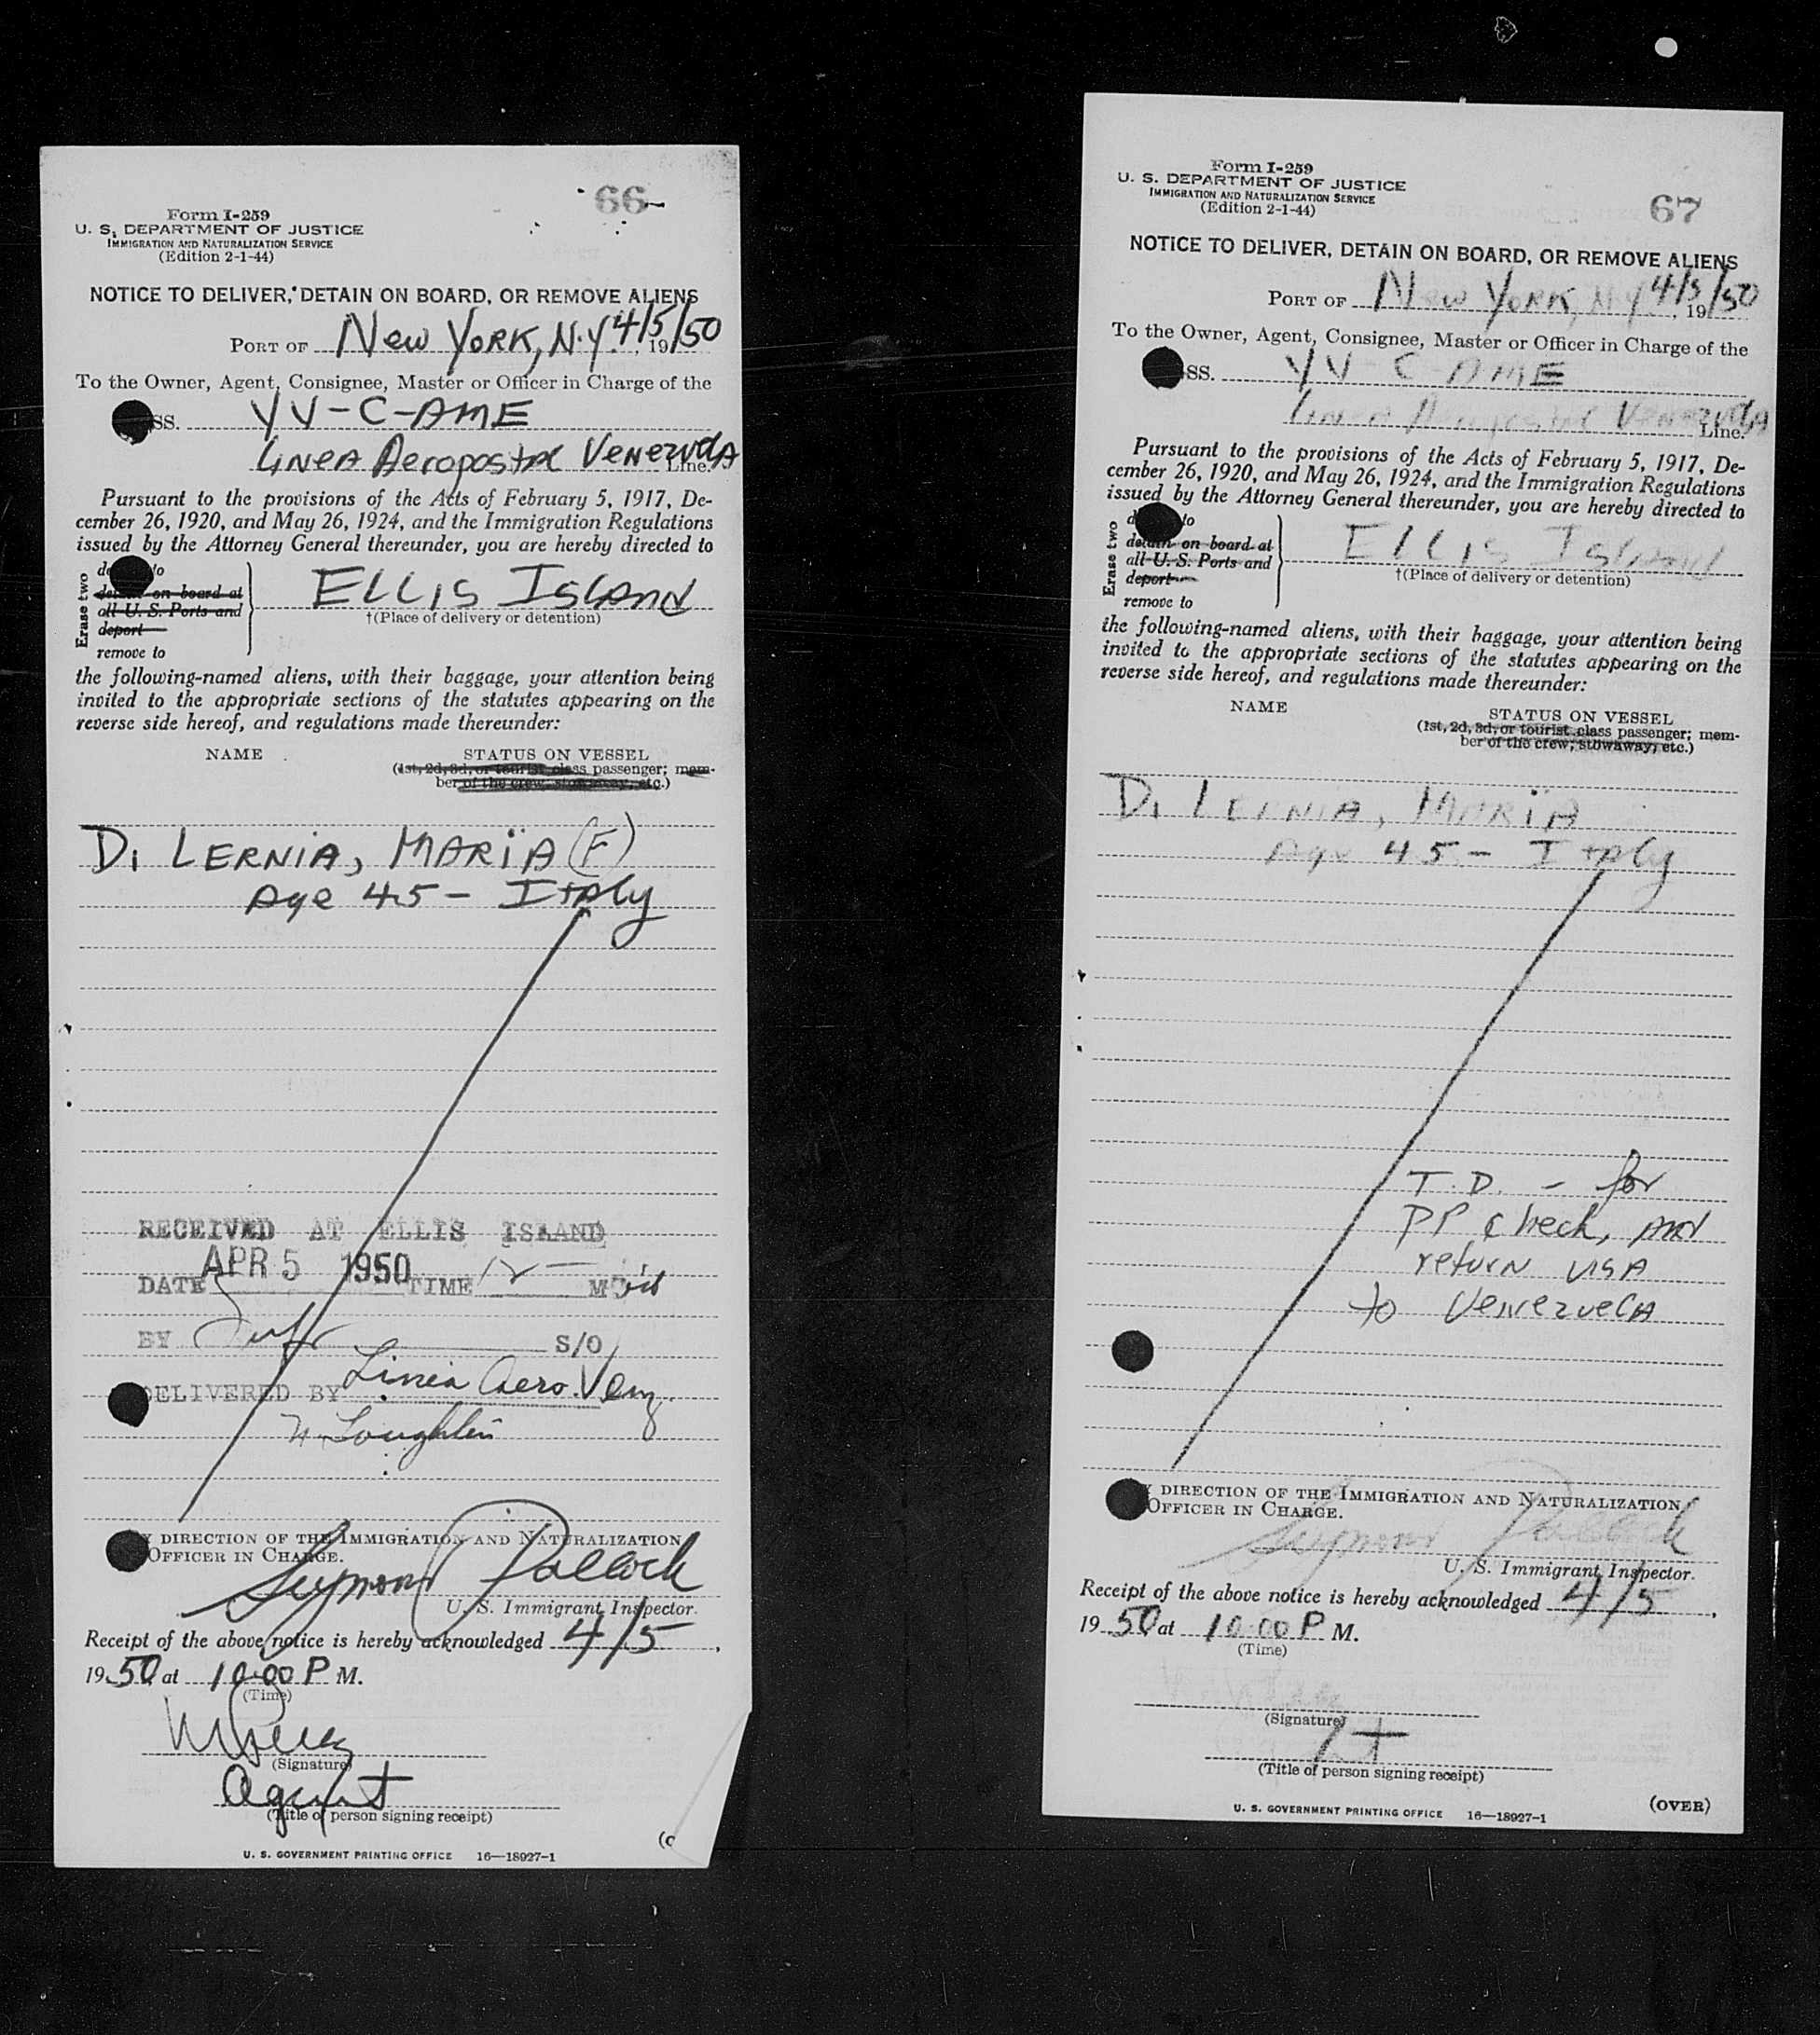 66
Form I-259
U. S. DEPARTMENT OF JUSTICE
IMMIGRATION AND NATURALIZATION SERVICE
(Edition 2-1-44)
NOTICE TO DELIVER, DETAIN ON BOARD, OR REMOVE ALIENS
PORT OF New York, N.Y. 4/5/, 19 50
To the Owner, Agent, Consignee, Master or Officer in Charge of the
SS. YV-C-AME
Linea Aeropostal Venezuela Line.
Pursuant to the provisions of the Acts of February 5, 1917, De-
cember 26, 1920, and May 26, 1924, and the Immigration Regulations
issued by the Attorney General thereunder, you are hereby directed to
Erase two
to
detain on board at
all U. S. Ports and
deport
remove to
ELLIS ISLAND
†(Place of delivery or detention)
the following-named aliens, with their baggage, your attention being
invited to the appropriate sections of the statutes appearing on the
reverse side hereof, and regulations made thereunder:
NAME STATUS ON VESSEL
(1st, 2d, 3d, or tourist class passenger; mem-
ber of the crew, stowaway, etc.)
Di LERNIA, MARIA (F)
Age 45 - Italy
RECEIVED AT ELLIS ISLAND
DATE APR 5 1950 TIME 12 — M
BY S/O
DELIVERED BY Linea Aero. Venz.
Loughlin
DIRECTION OF THE IMMIGRATION AND NATURALIZATION
OFFICER IN CHARGE.
Seymour Pollock
U. S. Immigrant Inspector.
Receipt of the above notice is hereby acknowledged 4/5,
19 50 at 10:00 P M.
(Time)
(Signature)
Agent
(Title of person signing receipt)
U. S. GOVERNMENT PRINTING OFFICE 16—18927-1
67
Form I-259
U. S. DEPARTMENT OF JUSTICE
IMMIGRATION AND NATURALIZATION SERVICE
(Edition 2-1-44)
NOTICE TO DELIVER, DETAIN ON BOARD, OR REMOVE ALIENS
PORT OF New York, N.Y. 4/5/, 19 50
To the Owner, Agent, Consignee, Master or Officer in Charge of the
SS. YV-C-AME
Linea Aeropostal Venezuela Line.
Pursuant to the provisions of the Acts of February 5, 1917, De-
cember 26, 1920, and May 26, 1924, and the Immigration Regulations
issued by the Attorney General thereunder, you are hereby directed to
Erase two
to
detain on board at
all U. S. Ports and
deport
remove to
ELLIS ISLAND
†(Place of delivery or detention)
the following-named aliens, with their baggage, your attention being
invited to the appropriate sections of the statutes appearing on the
reverse side hereof, and regulations made thereunder:
NAME STATUS ON VESSEL
(1st, 2d, 3d, or tourist class passenger; mem-
ber of the crew, stowaway, etc.)
Di LERNIA, MARIA
Age 45 - Italy
T.D. - for
PP check, and
return visa
to Venezuela
DIRECTION OF THE IMMIGRATION AND NATURALIZATION
OFFICER IN CHARGE.
Seymour Pollock
U. S. Immigrant Inspector.
Receipt of the above notice is hereby acknowledged 4/5,
19 50 at 10:00 P M.
(Time)
(Signature)
(Title of person signing receipt)
U. S. GOVERNMENT PRINTING OFFICE 16—18927-1 (OVER)